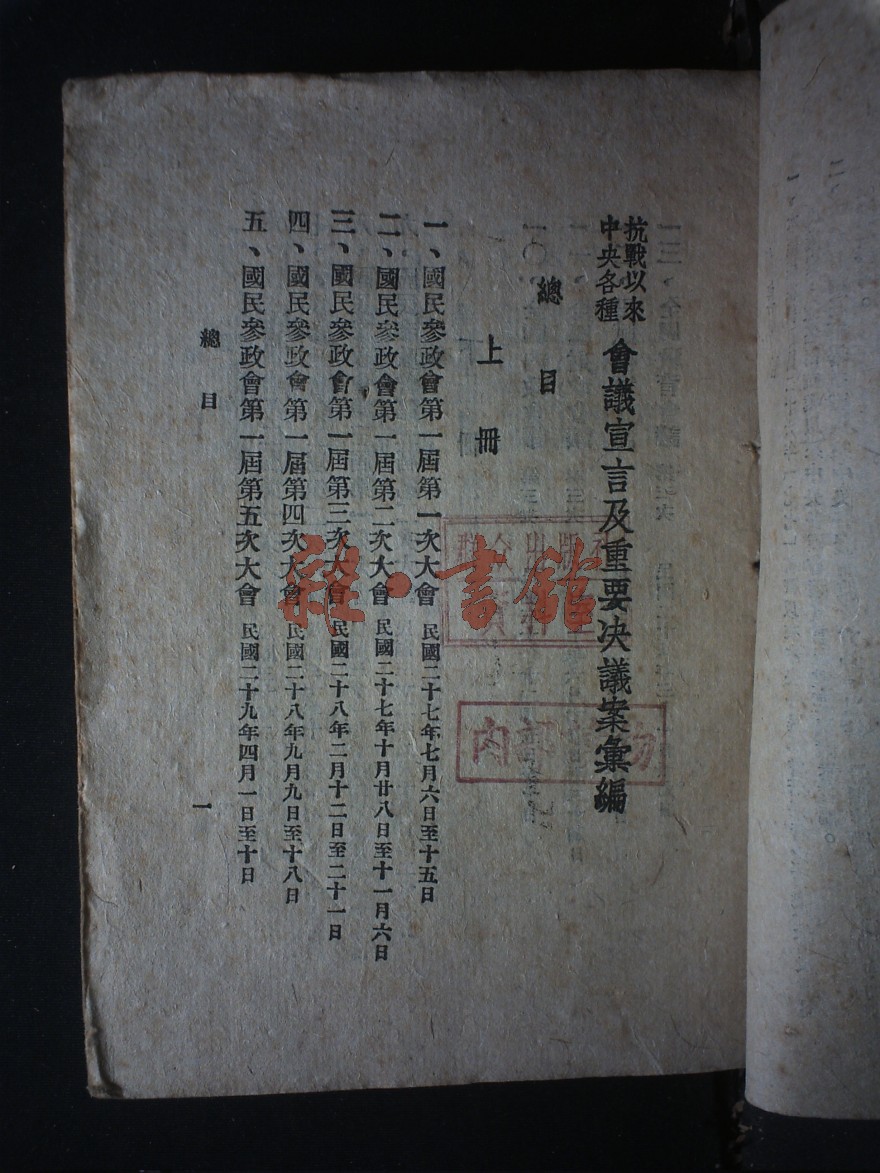 抗戰以來
中央各種
會議宣言及重要决議案彙編
總目
上冊
一、國民參政會第一屆第一次大會 民國二十七年七月六日至十五日
二、國民參政會第一屆第二次大會 民國二十七年十月廿八日至十一月六日
三、國民參政會第一屆第三次大會 民國二十八年二月十二日至二十一日
四、國民參政會第一屆第四次大會 民國二十八年九月九日至十八日
五、國民參政會第一屆第五次大會 民國二十九年四月一日至十日
總目
一
雜·書館